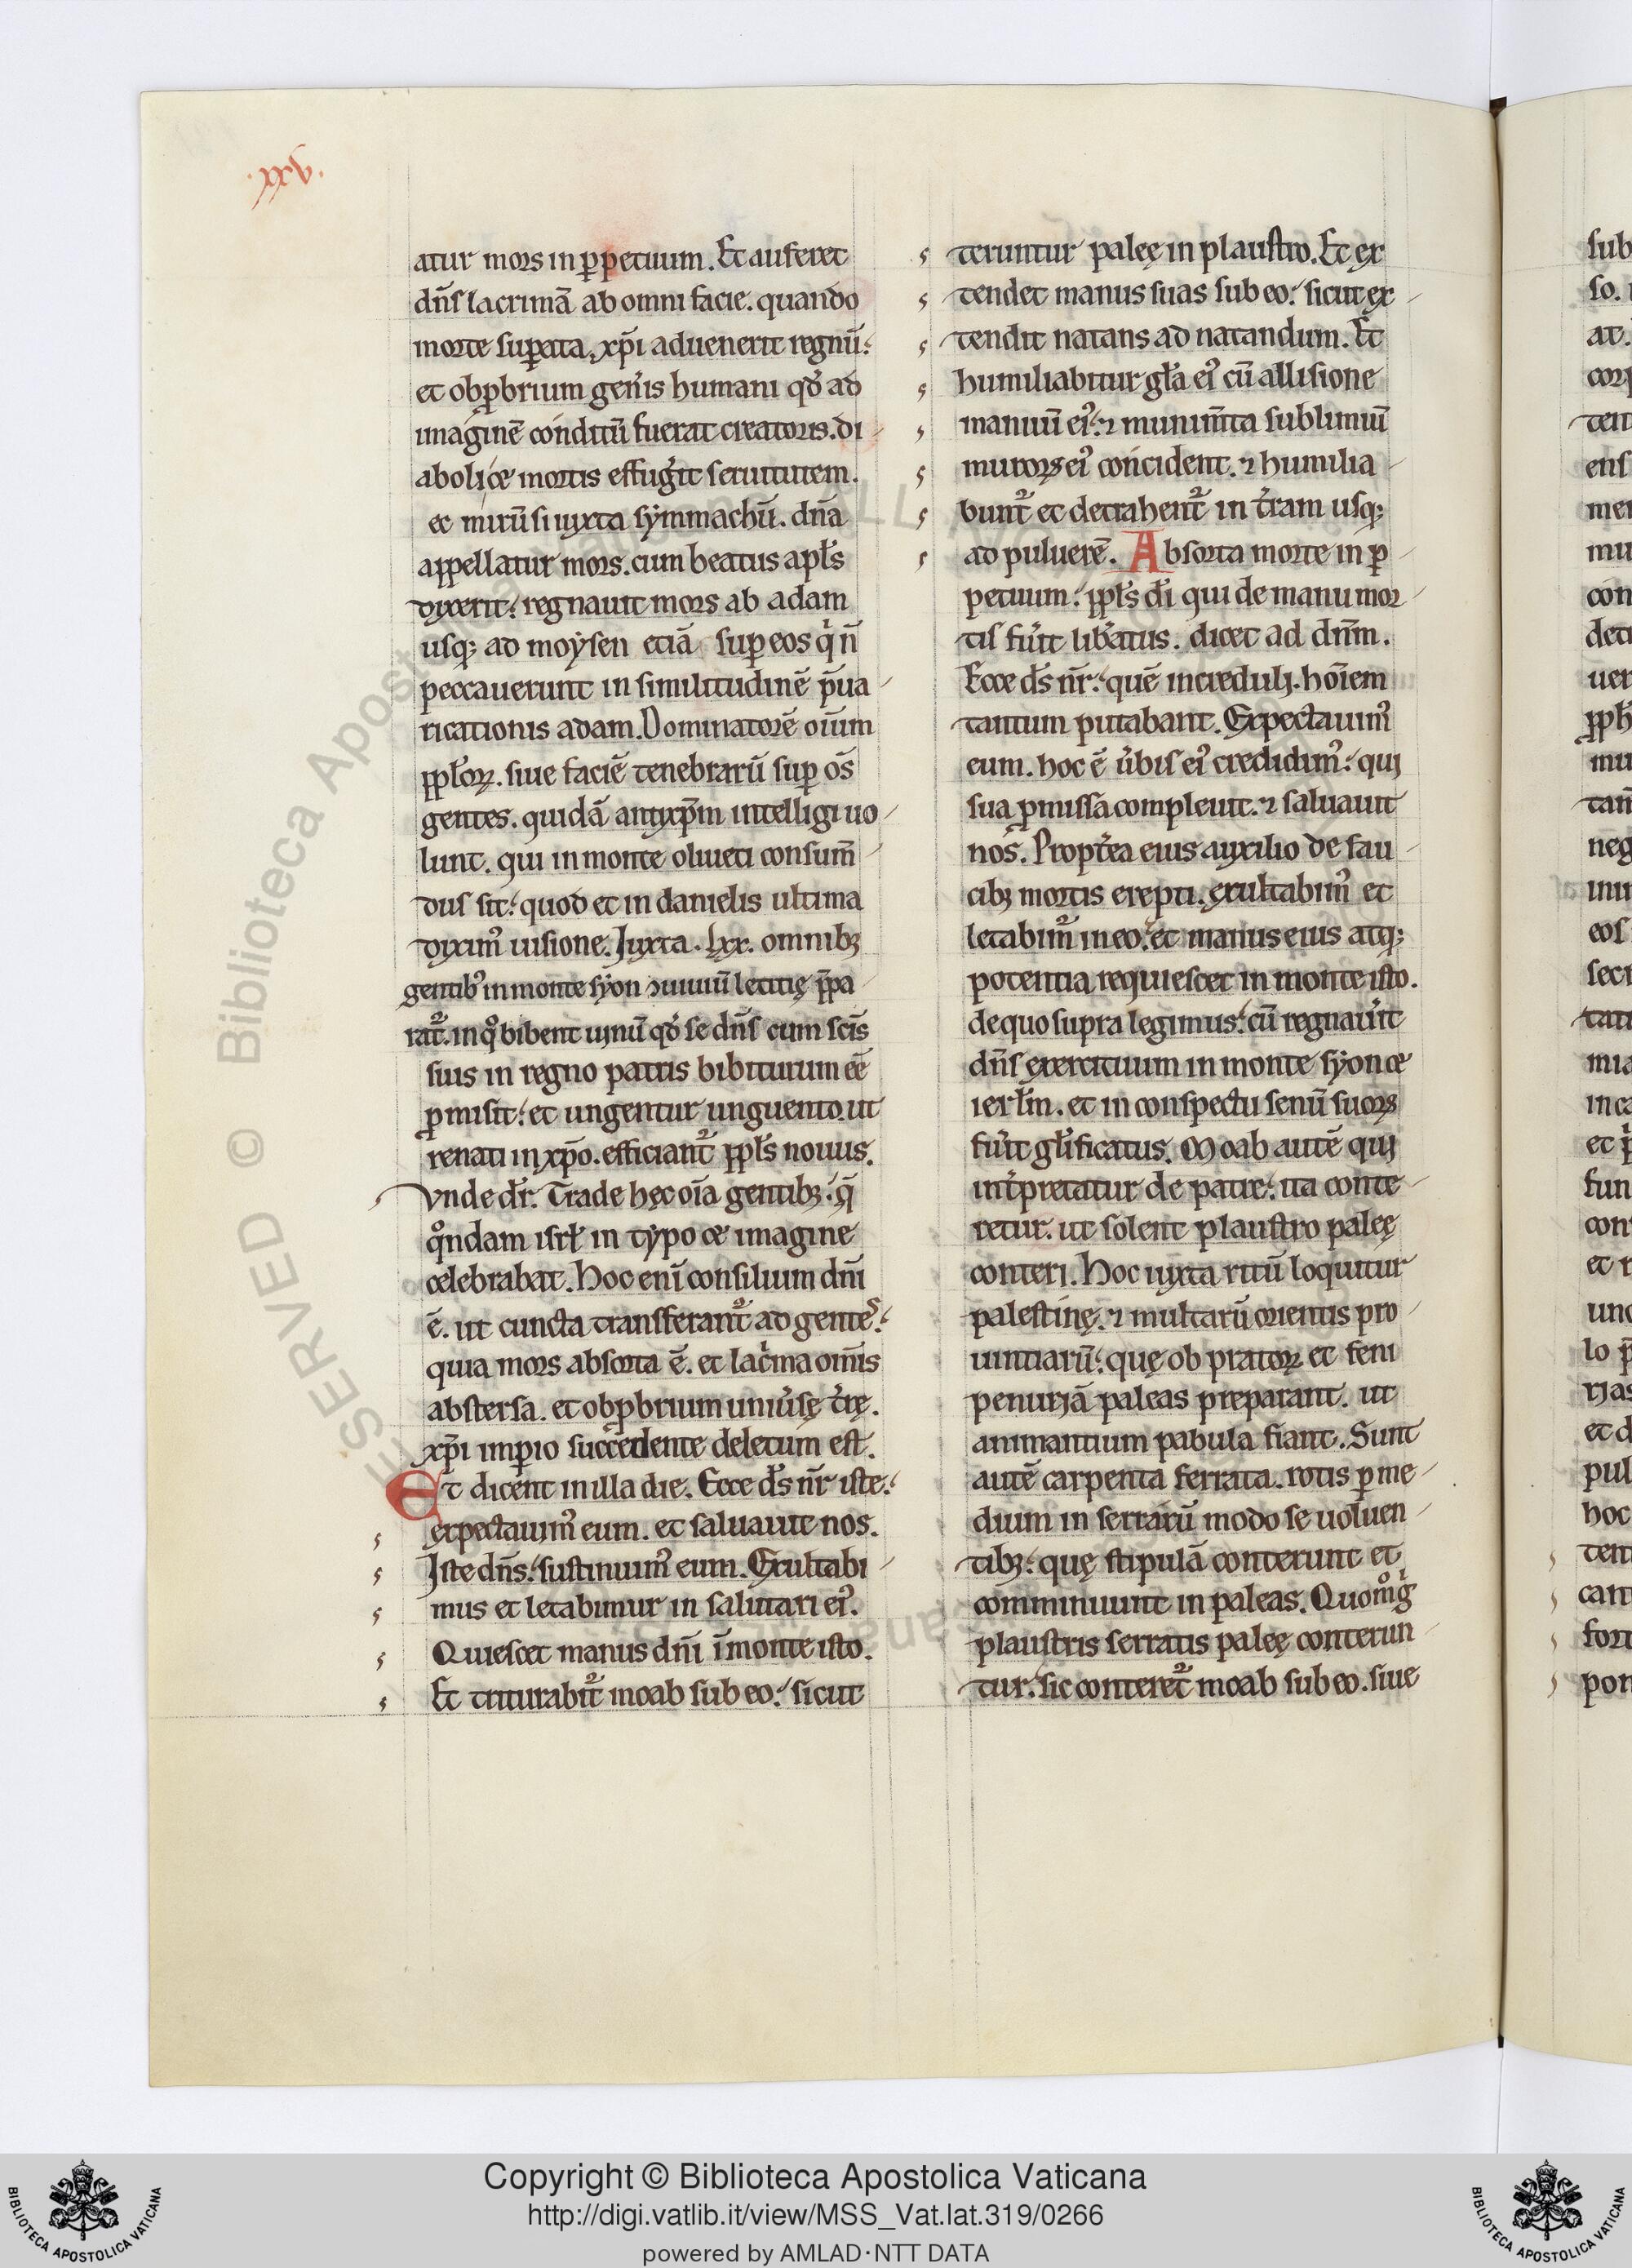 .xxv.
atur mors in ꝑpetuum. Et auferet
dñs lacrimā ab omni facie. quando
morte suꝑata, xp̄i aduenerit regnū:
et obꝓbrium gen̄is humani qd̓ ad
imaginē conditū fuerat creatoris. di
abolice mortis effug̓it seruitutem.
et mirū si iuxta symmachū. dn̄a
appellatur mors. cum beatus apl̓s
dixerit: regnauit mors ab adam
usq; ad moysen etiā suꝑ eos q̇ n̄
peccauerunt in similitudinē p̄ua
ricationis adam. Dominatorē oīum
ppl̓oꝝ. siue faciē tenebrarū suꝑ om̄s
gentes. quidā antixp̄m intelligi uo
lunt. qui in monte oliueti consum̄
dus sit: quod et in danielis ultima
diximꝰ uisione. Iuxta .lxx. omnibꝫ
gentibꝰ in monte syon ꝯuiuiū letitię p̄pa
rat᷑. in q̊ bibent uinū qd̓ se dn̄s cum scīs
suis in regno patris bibiturum ēē
ꝓmisit: et ungentur unguento. ut
renati in xp̄o. efficiant᷑ ppl̓s nouus.
Vnde dr̄. Trade hęc oīa gentibꝫ: q̄
q̊ndam isrl̓ in typo ce imagine
celebrabat. Hoc enī consilium dn̄i
ē. ut cuncta transferant᷑ ad gentes:
quia mors absorta ē. et lac̓ma om̄is
abstersa. et obꝓbrium uniu̓sę t̓rę.
xp̄i imꝑio succedente deletum est.
Et dicent in illa die. Ecce d̓s nr̄ iste:
expectauimꝰ eum. et saluauit nos.
Iste dn̄s: sustinuimꝰ eum. Exultabi
mus et letabimur in salutari eiꝰ.
Quiescet manus dn̄i ī monte isto.
Et triturabit᷑ moab sub eo: sicut
teruntur palęę in plaustro. Et ex
tendet manus suas sub eo: sicut ex
tendit natans ad natandum. Et
humiliabitur gl̓a eiꝰ cū allisione
manuū eiꝰ: ⁊ munim̄ta sublimiū
muroꝝ eiꝰ concident. ⁊ humilia
bunt᷑ et detrahent᷑ in t̓ram usq;
ad puluerē. Absorta morte in ꝑ
petuum: ppl̓s d̓i qui de manu mor
tis fu̓it lib̓atus. dicet ad dn̄m.
Ecce d̓s nr̄: quē increduli. hoīem
tantum putabant. Expectauimꝰ
eum. hoc ē u̓bis eiꝰ credidimꝰ: qui
sua ꝓmissa compleuit. ⁊ saluauit
nos. Propt̓ea eius auxilio de fau
cibꝫ mortis erepti. exultabimꝰ et
letabim᷑ in eo: et manus eius atq;
potentia requiescet in monte isto.
de quo supra legimus: cū regnau̓it
dn̄s exercituum in monte syon ce
ierl̓m. et in conspectu senū suoꝝ
fu̓it gl̓ificatus. Moab autē qui
int̓pretatur de patre: ita conte
retur. ut solent plaustro palęę
conteri. Hoc iuxta ritū loquitur
palestinę. ⁊ multarū orientis pro
uintiarū: quę ob pratoꝝ et feni
penuriā paleas preparant. ut
animantium pabula fiant. Sunt
autē carpenta ferrata. rotis ꝑ me
dium in serrarū modo se uoluen
tibꝫ: quę stipulā conterunt et
comminuunt in paleas. Quom̊ g̓
plaustris serratis palęę conterun
tur: sic conteret᷑ moab sub eo. siue
Copyright © Biblioteca Apostolica Vaticana
http://digi.vatlib.it/view/MSS_Vat.lat.319/0266
powered by AMLAD·NTT DATA
BIBLIOTECA APOSTOLICA VATICANA
BIBLIOTECA APOSTOLICA VATICANA